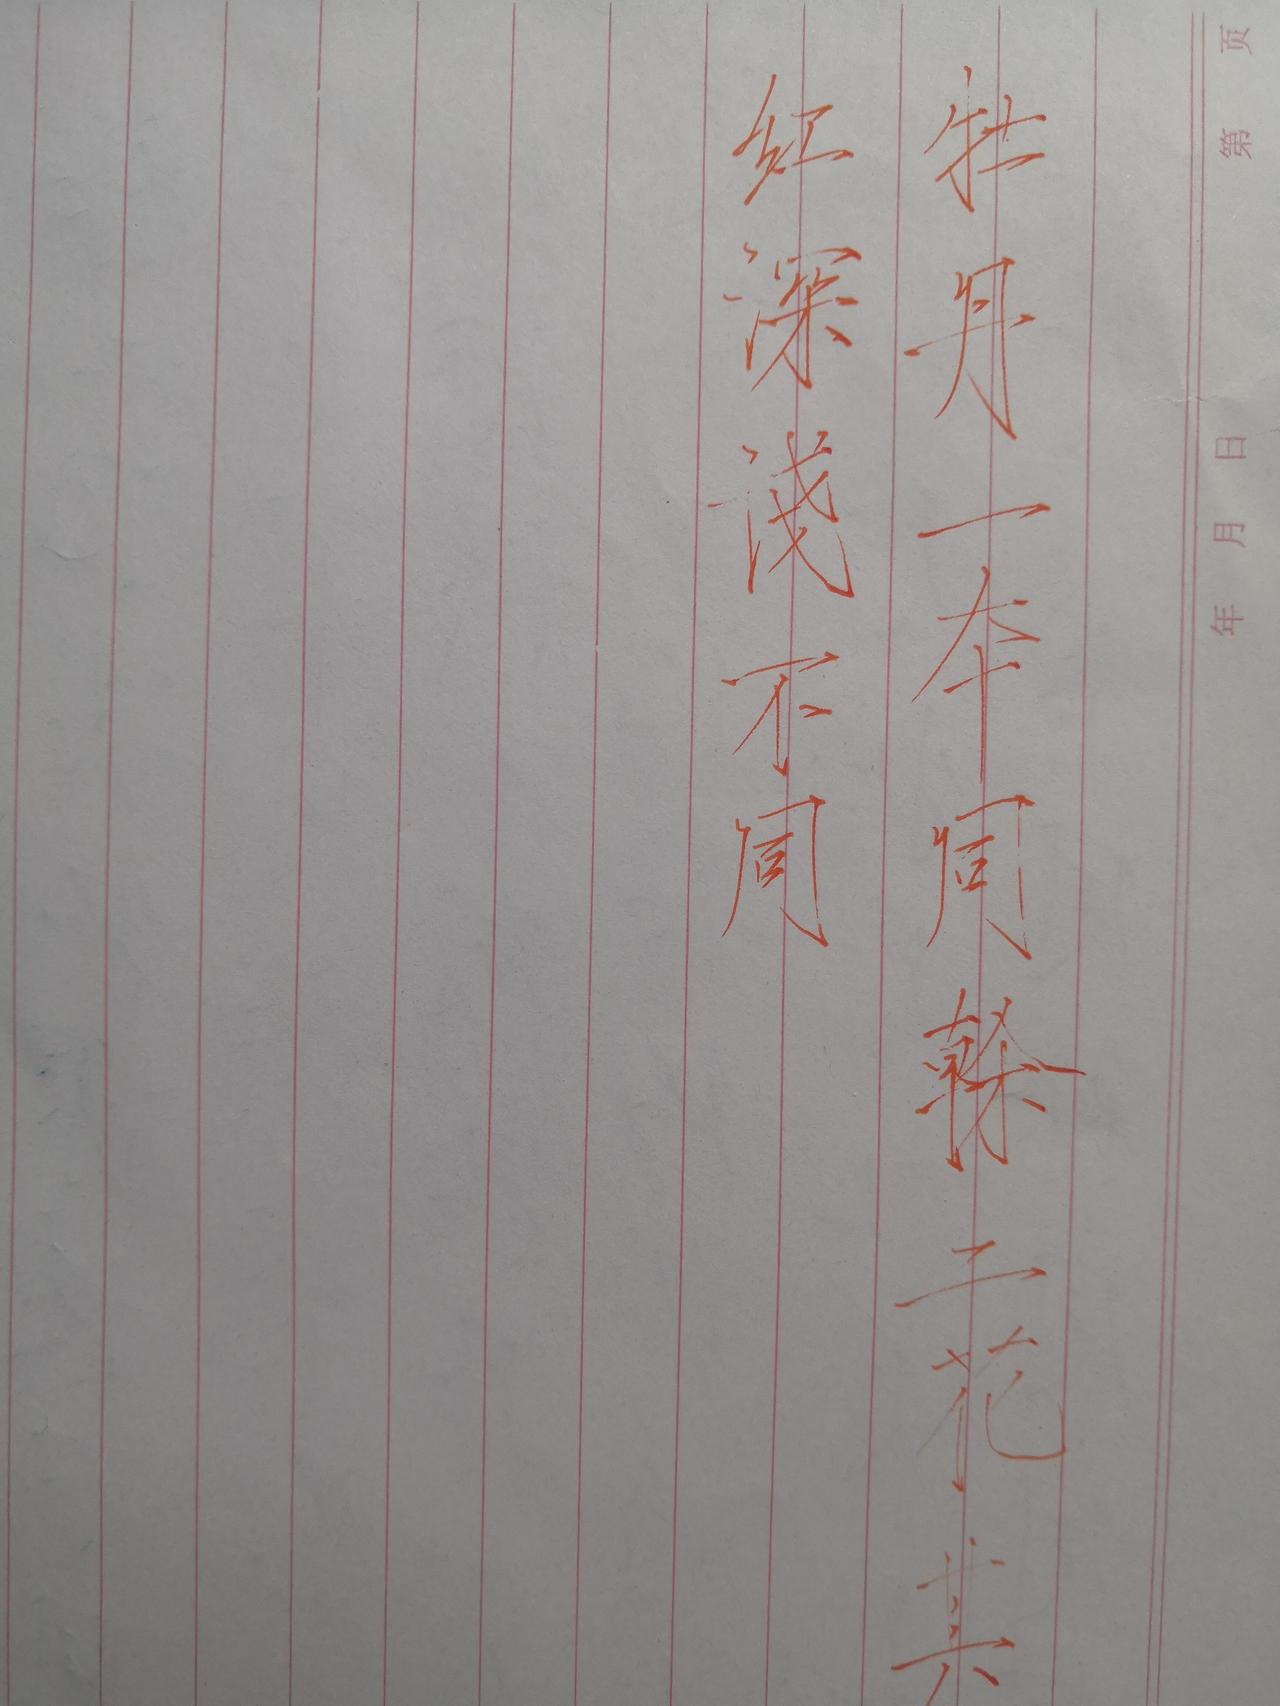 年 月 日 第 页
牡丹一本同榦二花其
红深浅不同